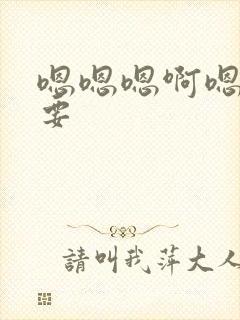 嗯嗯嗯啊嗯
要
請叫我萍大人